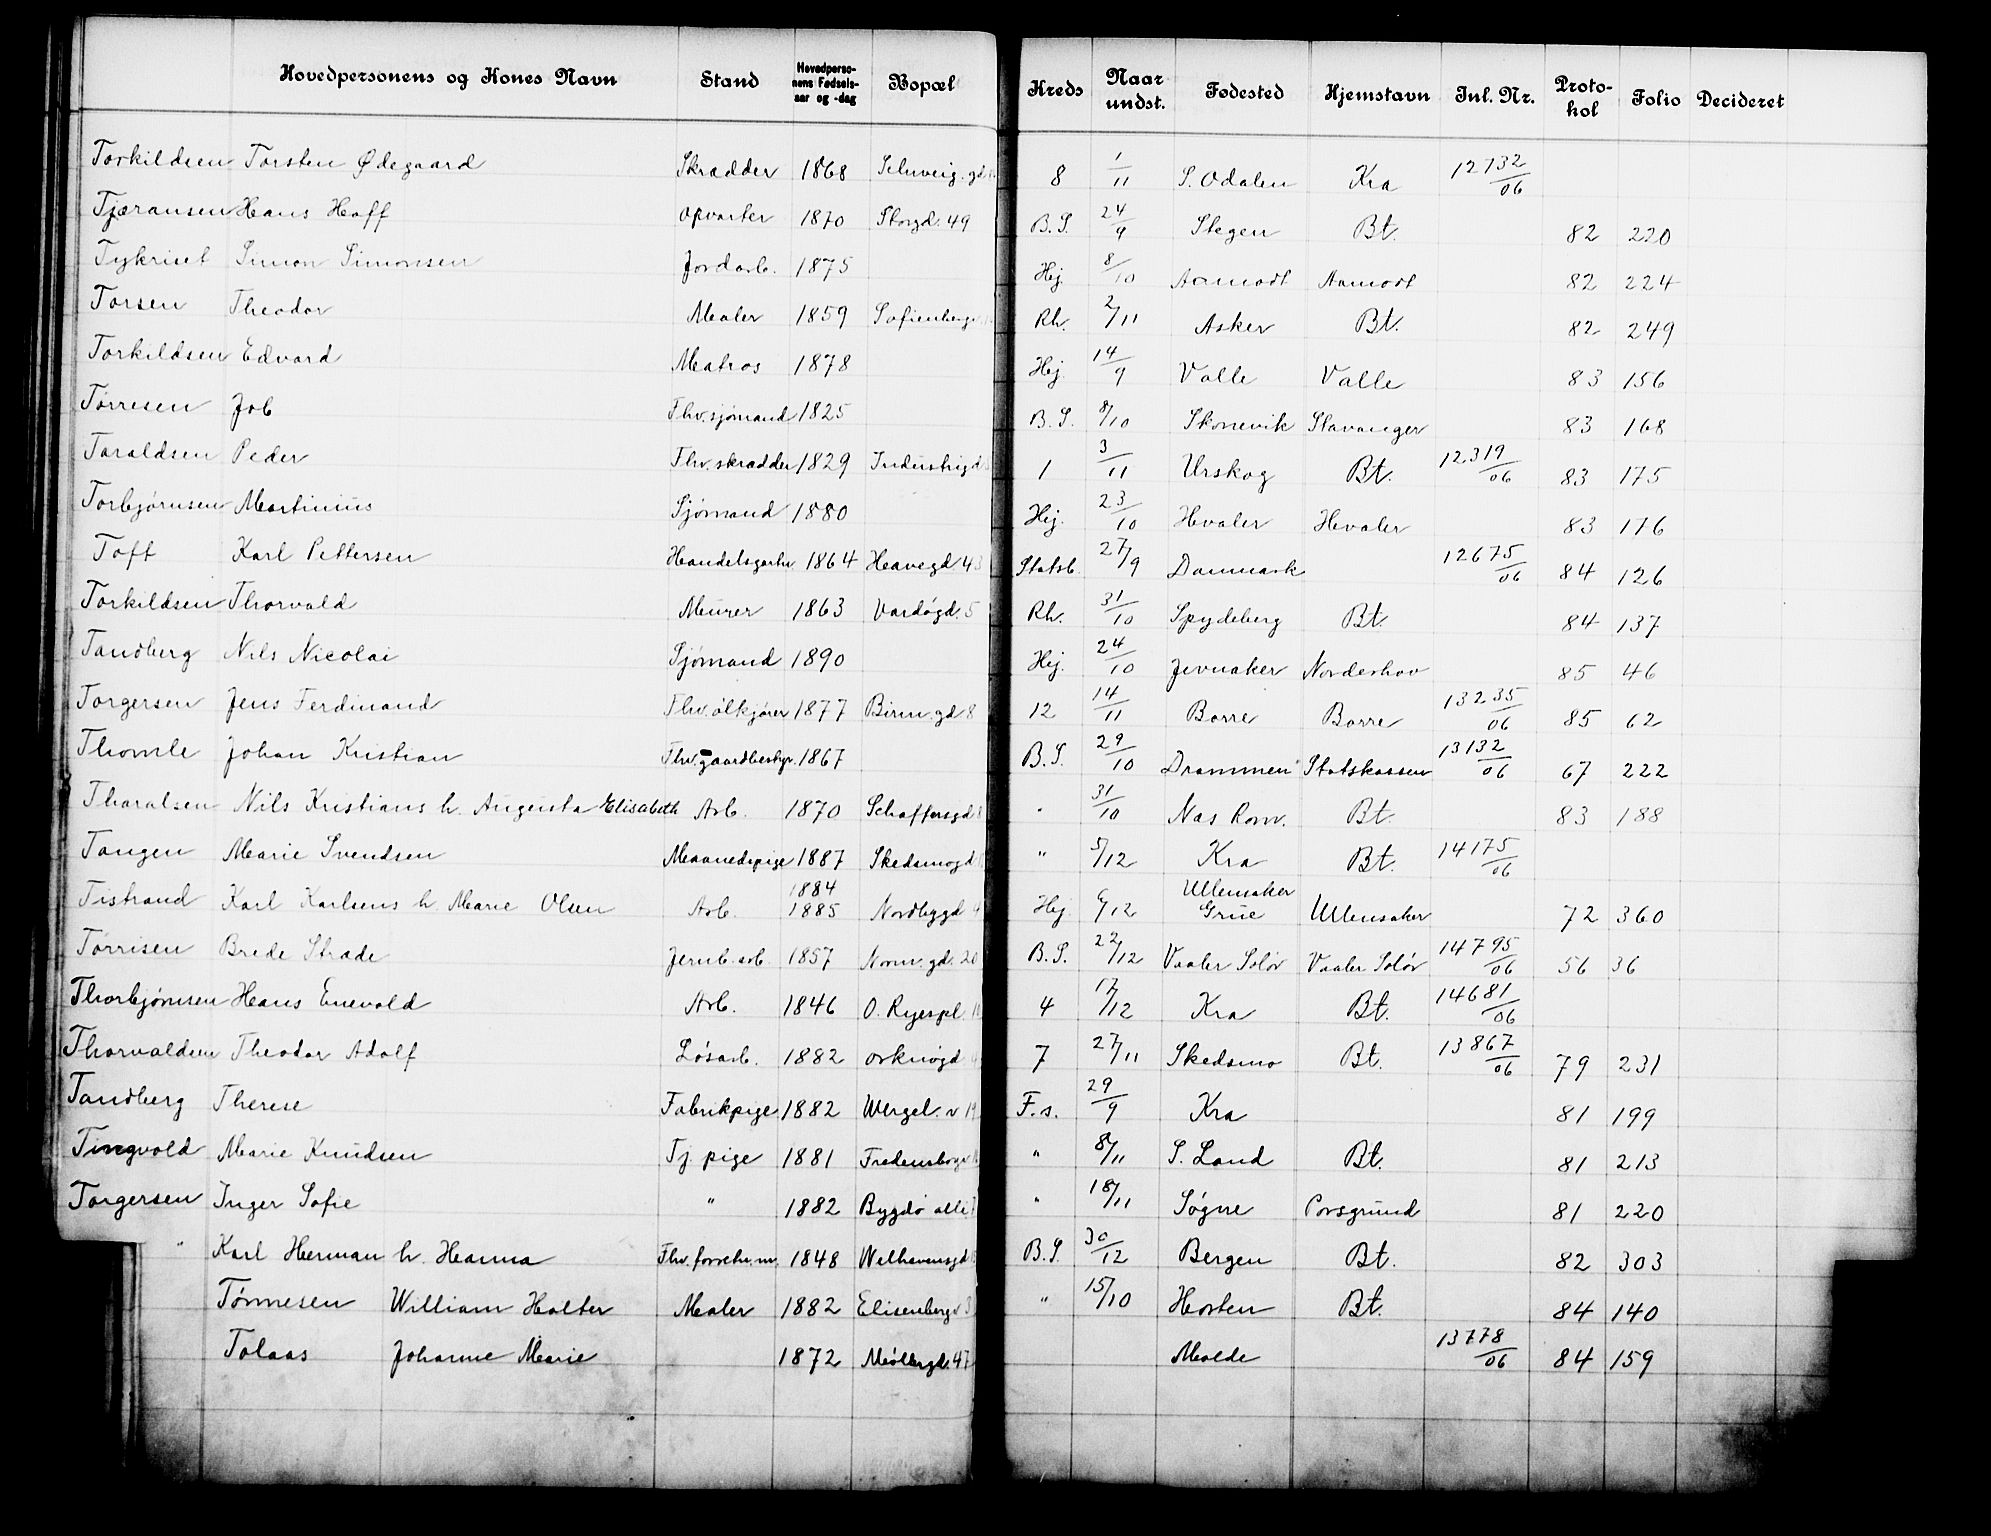 Hovedpersonens og Kones Navn Stand Hovedpersonens Fødsels-aar og -dag Bopæl Kreds Naar undst. Fødested Hjemstavn Inl. Nr. Protokol Folio Decideret
Torkildsen Torsten Ødegaard Skrædder 1868 Schweig.gd. 8 1/11 S. Odalen Kra 12732/06
Tjæransen Hans Hoff Opvarter 1870 Storgd. 49 B.S. 24/9 Stegen Bt. 82 220
Tykriset Simon Simonsen Jordarb. 1875 Hej. 8/10 Aamodt Aamodt 82 224
Torsen Theodor Maler 1859 Sofienberg Rh. 2/11 Asker Bt. 82 249
Torkildsen Edvard Matros 1878 Hej. 14/9 Valle Valle 83 156
Tørresen Job Fhv. sjømand 1825 B.S. 8/10 Skonevik Stavanger 83 168
Taraldsen Peder Fhv. skrædder 1829 Industrigd 1 3/11 Urskog Bt. 12319/06 83 175
Torbjørnsen Martinius Sjømand 1880 Hej. 23/10 Hvaler Hvaler 83 176
Toft Karl Pettersen Handelsgartn 1864 Havegd. 43 Statsb. 27/9 Danmark 12675/06 84 126
Torkildsen Thorvald Murer 1863 Vardøgd. 5 Rh. 31/10 Spydeberg Bt. 84 137
Tandberg Nils Nicolai Sjømand 1890 Hej. 24/10 Jevnaker Norderhov 85 46
Torgersen Jens Ferdinand Fhv. ølkjører 1877 Birm.gd 8 12 14/11 Borre Borre 13235/06 85 62
Thomle Johan Kristian Fhv. gaardbestyr. 1867 B.S. 29/10 Drammen Statskassen 13132/06 67 222
Thoralsen Nils Kristians h. Augusta Elisabeth Arb. 1870 Schaffersgd " 31/10 Nas Rom. Bt. 83 188
Tangen Marie Svendsen Maanedspige 1887 Skedsmogd " 5/12 Kra Bt. 14175/06
Tistrand Karl Karlsens h. Marie Olsen Arb. 1884 1885 Nordbygd Hej. 6/12 Ullensaker Grue Ullensaker 72 360
Tørrisen Brede Strade Jernb.arb. 1857 Norm.gd. 20 B.S. 22/12 Vaaler Solør Vaaler Solør 14795/06 56 36
Thorbjørnsen Hans Enevold Arb. 1846 O. Ryespl. 4 17/12 Kra Bt. 14681/06
Thorvaldsen Theodor Adolf Løsarb. 1882 Orknøgd 7 27/11 Skedsmo Bt. 13867/06 79 231
Tandberg Therese Fabrikpige 1882 Wergel. v 19 F.s. 29/9 Kra 81 199
Tingvold Marie Knudsen Tj. pige 1881 Fredensborgv " 8/11 S. Land Bt. 81 213
Torgersen Inger Sofie " 1882 Bygdø alle " 18/11 Søgne Porsgrund 81 220
" Karl Herman h. Hanna Fhv. forretn.m. 1848 Welhavensgd B.S. 30/12 Bergen Bt. 82 303
Tønnesen William Halter Maler 1882 Elisenbergv 3 " 15/10 Horten Bt. 84 140
Tolaas Johanne Marie 1872 Møllergd. 47 Molde 13778/06 84 159